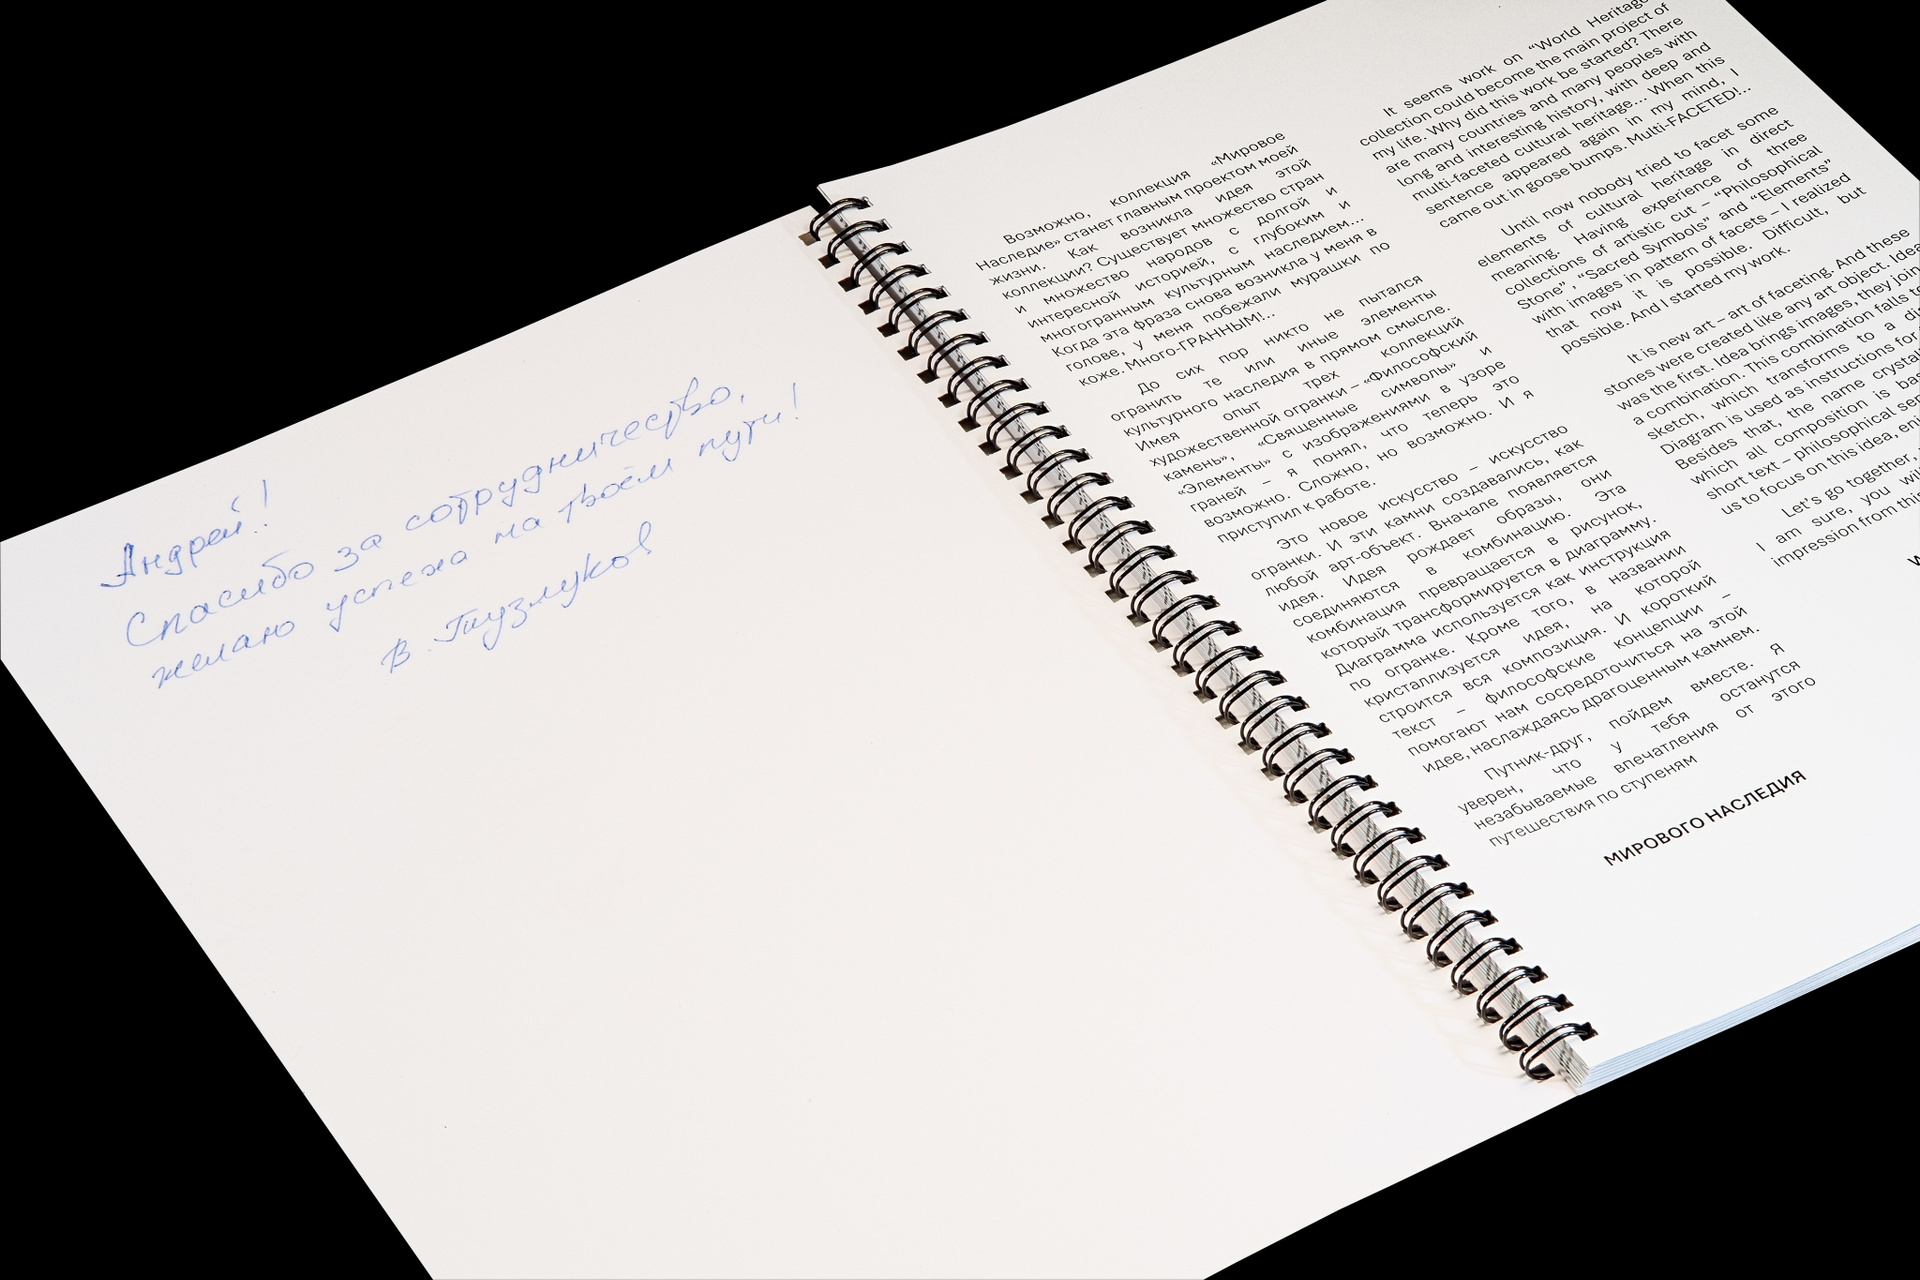 Андрей!
Спасибо за сотрудничество,
желаю успеха на твоём пути!
В. Тузлуков
Возможно, коллекция «Мировое
Наследие» станет главным проектом моей
жизни. Как возникла идея этой
коллекции? Существует множество стран
и множество народов с долгой и
интересной историей, с глубоким и
многогранным культурным наследием...
Когда эта фраза снова возникла у меня в
голове, у меня побежали мурашки по
коже. Много-ГРАННЫМ!..
До сих пор никто не пытался
огранить те или иные элементы
культурного наследия в прямом смысле.
Имея опыт трех коллекций
художественной огранки – «Философский
камень», «Священные символы» и
«Элементы» с изображениями в узоре
граней – я понял, что теперь это
возможно. Сложно, но возможно. И я
приступил к работе.
Это новое искусство – искусство
огранки. И эти камни создавались, как
любой арт-объект. Вначале появляется
идея. Идея рождает образы, они
соединяются в комбинацию. Эта
комбинация превращается в рисунок,
который трансформируется в диаграмму.
Диаграмма используется как инструкция
по огранке. Кроме того, в названии
кристаллизуется идея, на которой
строится вся композиция. И короткий
текст – философские концепции –
помогают нам сосредоточиться на этой
идее, наслаждаясь драгоценным камнем.
Путник-друг, пойдем вместе. Я
уверен, что у тебя останутся
незабываемые впечатления от этого
путешествия по ступеням
МИРОВОГО НАСЛЕДИЯ
It seems work on “World Heritage
collection could become the main project of
my life. Why did this work be started? There
are many countries and many peoples with
long and interesting history, with deep and
multi-faceted cultural heritage... When this
sentence appeared again in my mind, I
came out in goose bumps. Multi-FACETED!..
Until now nobody tried to facet some
elements of cultural heritage in direct
meaning. Having experience of three
collections of artistic cut – “Philosophical
Stone”, “Sacred Symbols” and “Elements”
with images in pattern of facets – I realized
that now it is possible. Difficult, but
possible. And I started my work.
It is new art – art of faceting. And these
stones were created like any art object. Idea
was the first. Idea brings images, they join
a combination. This combination falls to
sketch, which transforms to a
Diagram is used as instructions for
Besides that, the name
which all composition is
short text – philosophical
us to focus on this idea,
Let's go together,
I am sure, you
impression from